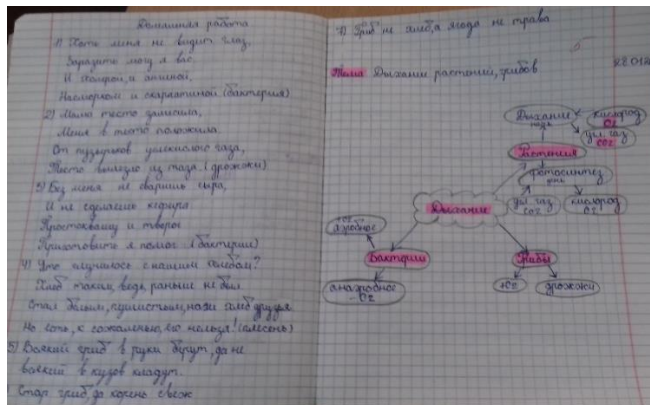 Домашняя работа
1) Хоть меня не видит глаз,
Заразить могу я вас
И холерой, и ангиной,
Насморком и скарлатиной (бактерия)
2) Мама тесто замесила,
Меня в тесто положила.
От пузырьков углекислого газа,
Тесто вылезло из таза. (дрожжи)
3) Без меня не сваришь сыра,
И не сделаешь кефира
Простоквашу и творог
Приготовить я помог (бактерии)
4) Что случилось с нашим хлебом?
Хлеб таким, ведь, раньше не был
Стал белым, пушистым, наш хлеб друзья
Но есть, к сожаленью, его нельзя! (плесень)
5) Всякий гриб в руки берут, да не
всякий в кузов кладут.
Стар гриб, да корень свеж
7) Гриб не хлеб, а ягода не трава
Тема: Дыхание растений, грибов
Дыхание
кислород
O2
угл. газ
CO2
Растения
фотосинтез
угл. газ
CO2
кислород
O2
Дыхание
+O2
аэробное
Бактерии
анаэробное
- O2
Грибы
+O2
дрожжи